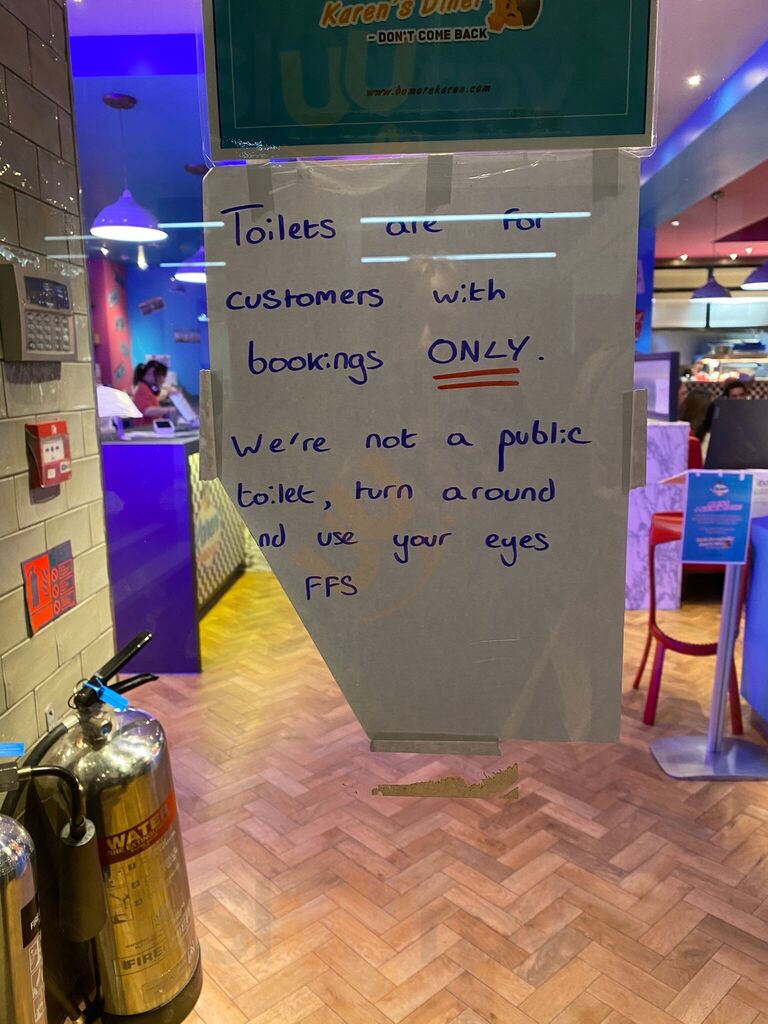 Karen's Diner
- DON'T COME BACK
www.bemorekaren.com
Toilets are for
customers with
bookings ONLY.
We're not a public
toilet, turn around
nd use your eyes
FFS
WATER
FIRE